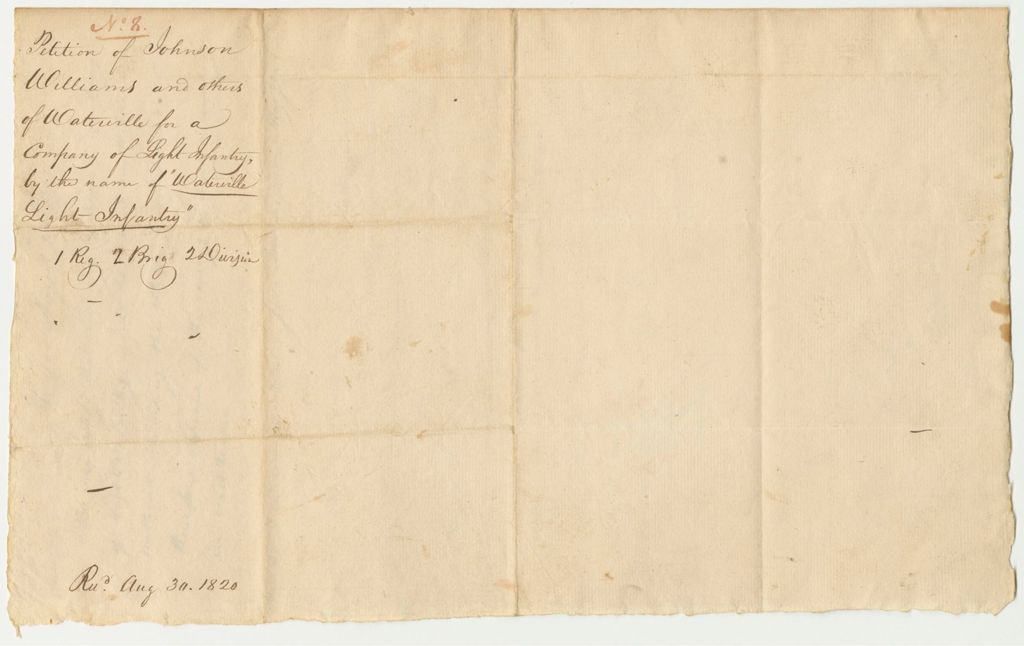 No. 8.
Petition of Johnson
Williams and others
of Waterville for a
Company of Light Infantry,
by the name of "Waterville
Light Infantry"
1 Reg. 2 Brig 2 Division
Recd. Aug 30. 1820